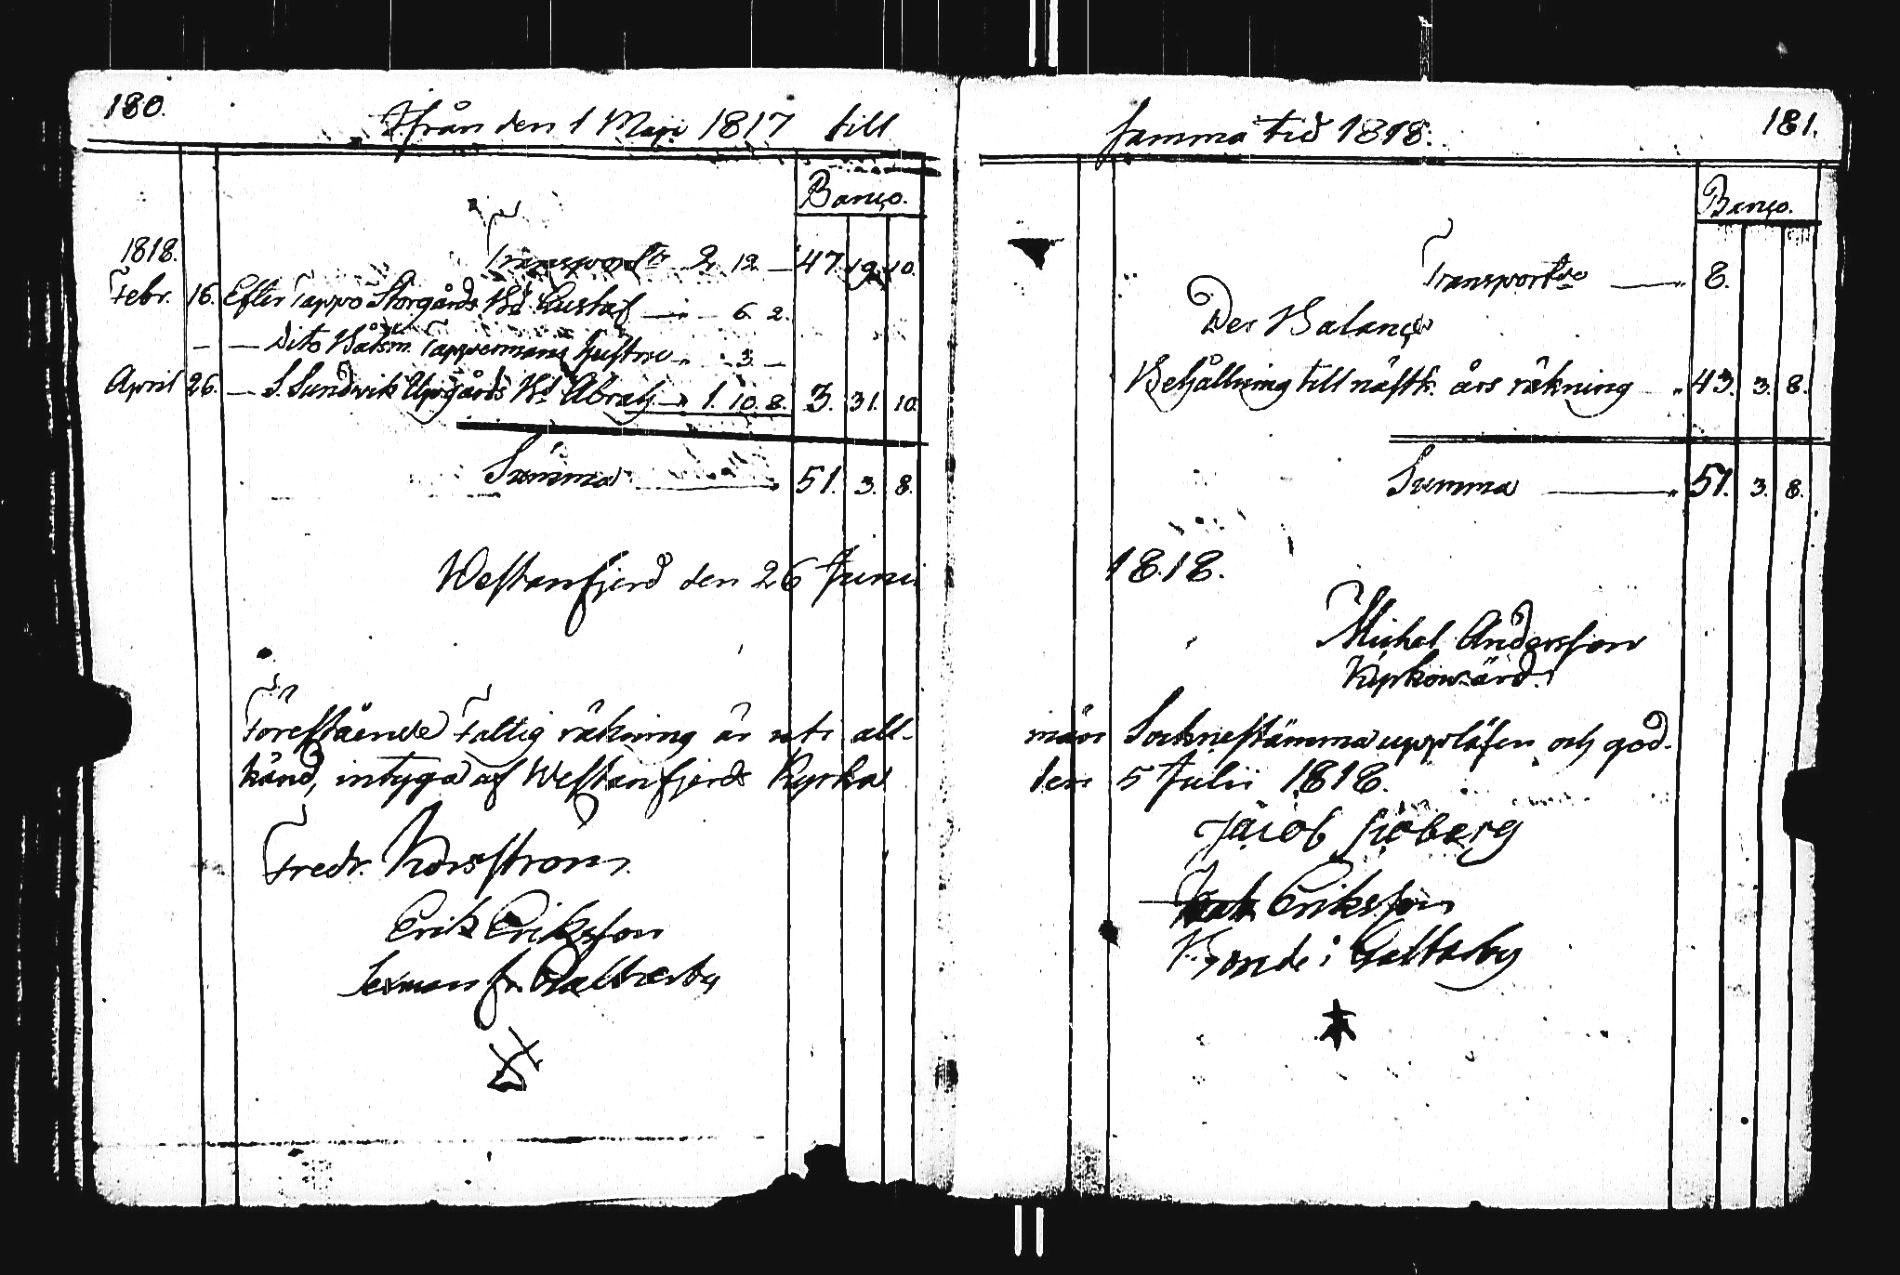 180.
Ifrån den 1 Maji 1817 till
Banco.
1818. Transport 2. 12. — 47. 19. 10.
Febr. 16. Efter Tappo Storgårds Bd. Gustaf — 6. 2.
— — Dito Båtsm. Tappermans hustru — 3. —
April 26. — S. Sundvik Uppgårds Bd. Abrah — 1. 10. 8. 3. 31. 10.
Summa 51. 3. 8.
Westanfjerd den 26 Junii
Föreståendе Fattig räkning är uti all-
känd, intygas af Westanfjerds Kyrka
Fredr. Norsström
Erik Eriksson
Sexman fr. Galtarby
181.
samma tid 1818.
Banco.
Transport — 8.
Per Balance
Behållning till nästk. års räkning 43. 3. 8.
Summa 51. 3. 8.
1818.
Michel Andersson
Kyrkowärd.
män Sockne stämma uppläsen och god-
den 5 Julii 1818.
Jacob Sjöberg
Eriksson
Bonde i Galtarby